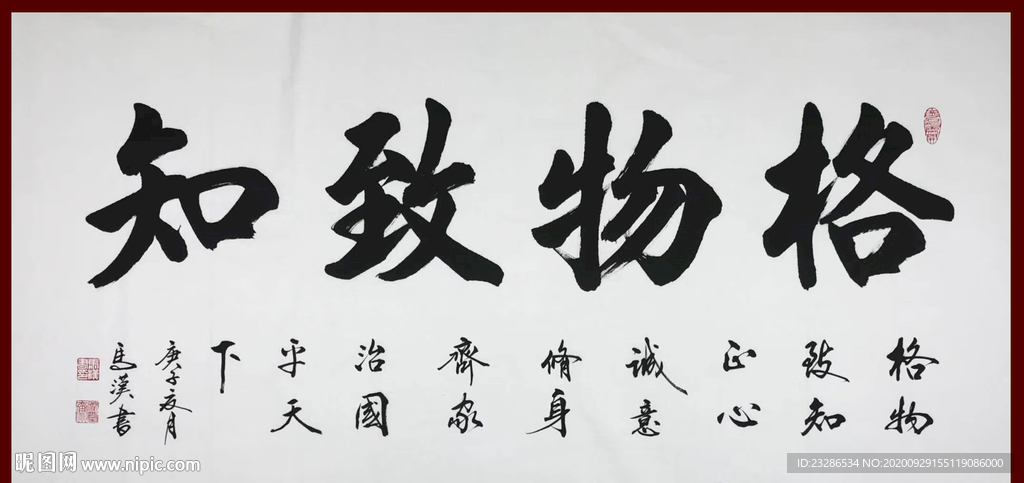 格物致知
格物
致知
正心
诚意
脩身
齊家
治國
平天
下
庚子夏月
馬漢書
昵图网 www.nipic.com
ID:23286534 NO:20200929155119086000